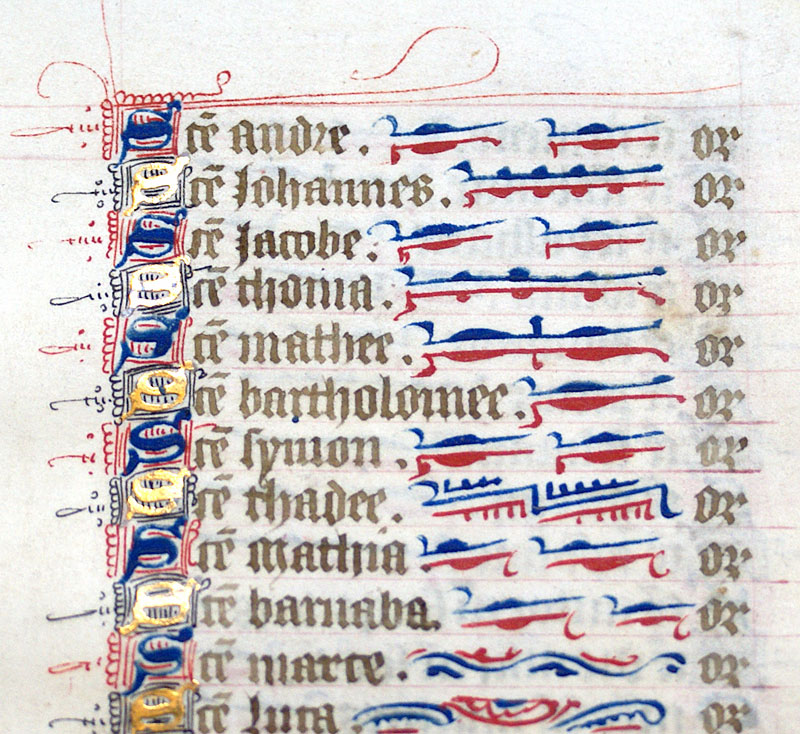 Scē andre. or
Scē Johannes. or
Scē Jacobe. or
Scē thoma. or
Scē mathee. or
Scē bartholomee. or
Scē symon. or
Scē thadee. or
Scē mathia. or
Scē barnaba. or
Scē marce. or
Scē luca. or